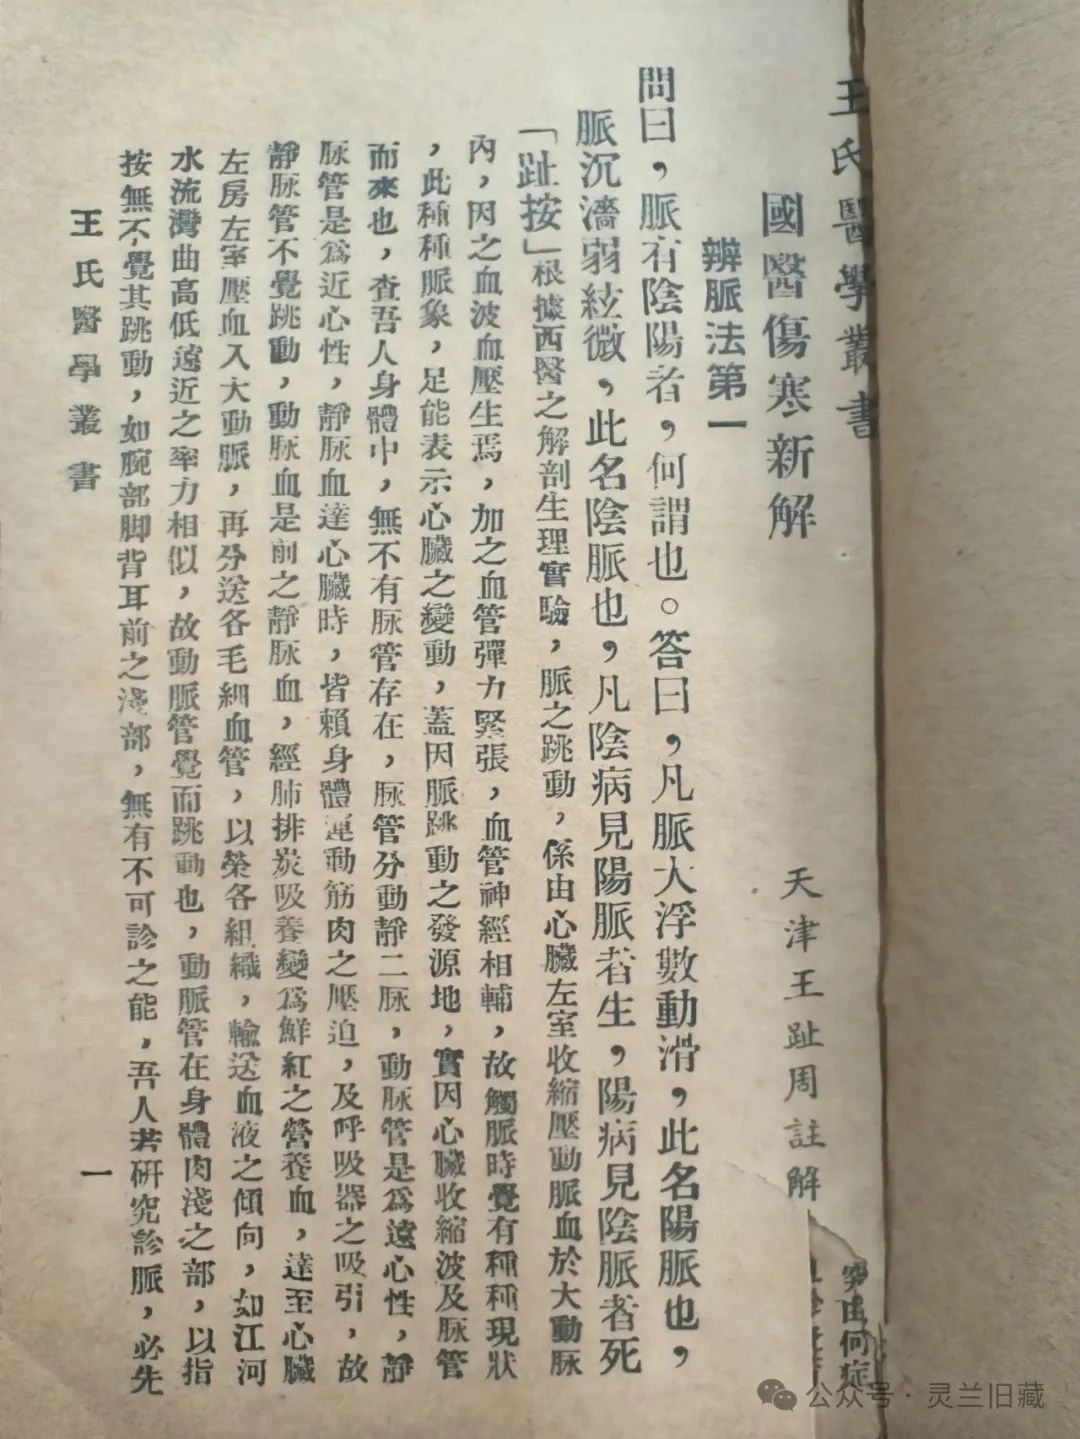 王氏醫學叢書
國醫傷寒新解
天津王趾周註解
辨脈法第一
問曰，脈有陰陽者，何謂也。答曰，凡脈大浮數動滑，此名陽脈也，
脈沉濇弱絃微，此名陰脈也，凡陰病見陽脈者生，陽病見陰脈者死
「趾按」根據西醫之解剖生理實驗，脈之跳動，係由心臟左室收縮壓動脈血於大動脉
內，因之血波血壓生焉，加之血管彈力緊張，血管神經相輔，故觸脈時覺有種種現狀
，此種種脈象，足能表示心臟之變動，蓋因脈跳動之發源地，實因心臟收縮波及脉管
而來也，查吾人身體中，無不有脉管存在，脉管分動靜二脉，動脉管是爲遠心性，靜
脉管是爲近心性，靜脉血達心臟時，皆賴身體運動筋肉之壓迫，及呼吸器之吸引，故
靜脉管不覺跳動，動脉血是前之靜脉血，經肺排炭吸養變爲鮮紅之營養血，達至心臟
左房左室壓血入大動脈，再分送各毛細血管，以榮各組織，輸送血液之傾向，如江河
水流灣曲高低遠近之率力相似，故動脈管覺而跳動也，動脈管在身體肉淺之部，以指
按無不覺其跳動，如腕部脚背耳前之淺部，無有不可診之能，吾人若研究診脈，必先
王氏醫學叢書
一
由何症
公众号·灵兰旧藏